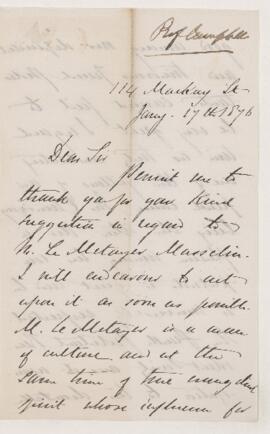 Prof Campbell
114 Mackay St
Jany. 17th 1876
Dear Sir
Permit me to
thank you for your kind
suggestion in regard to
M. Le Metayer Masselin.
I will endeavour to act
upon it as soon as possible.
M. Le Metayer is a man
of culture and at the
same time of true evangelical
spirit whose influence for